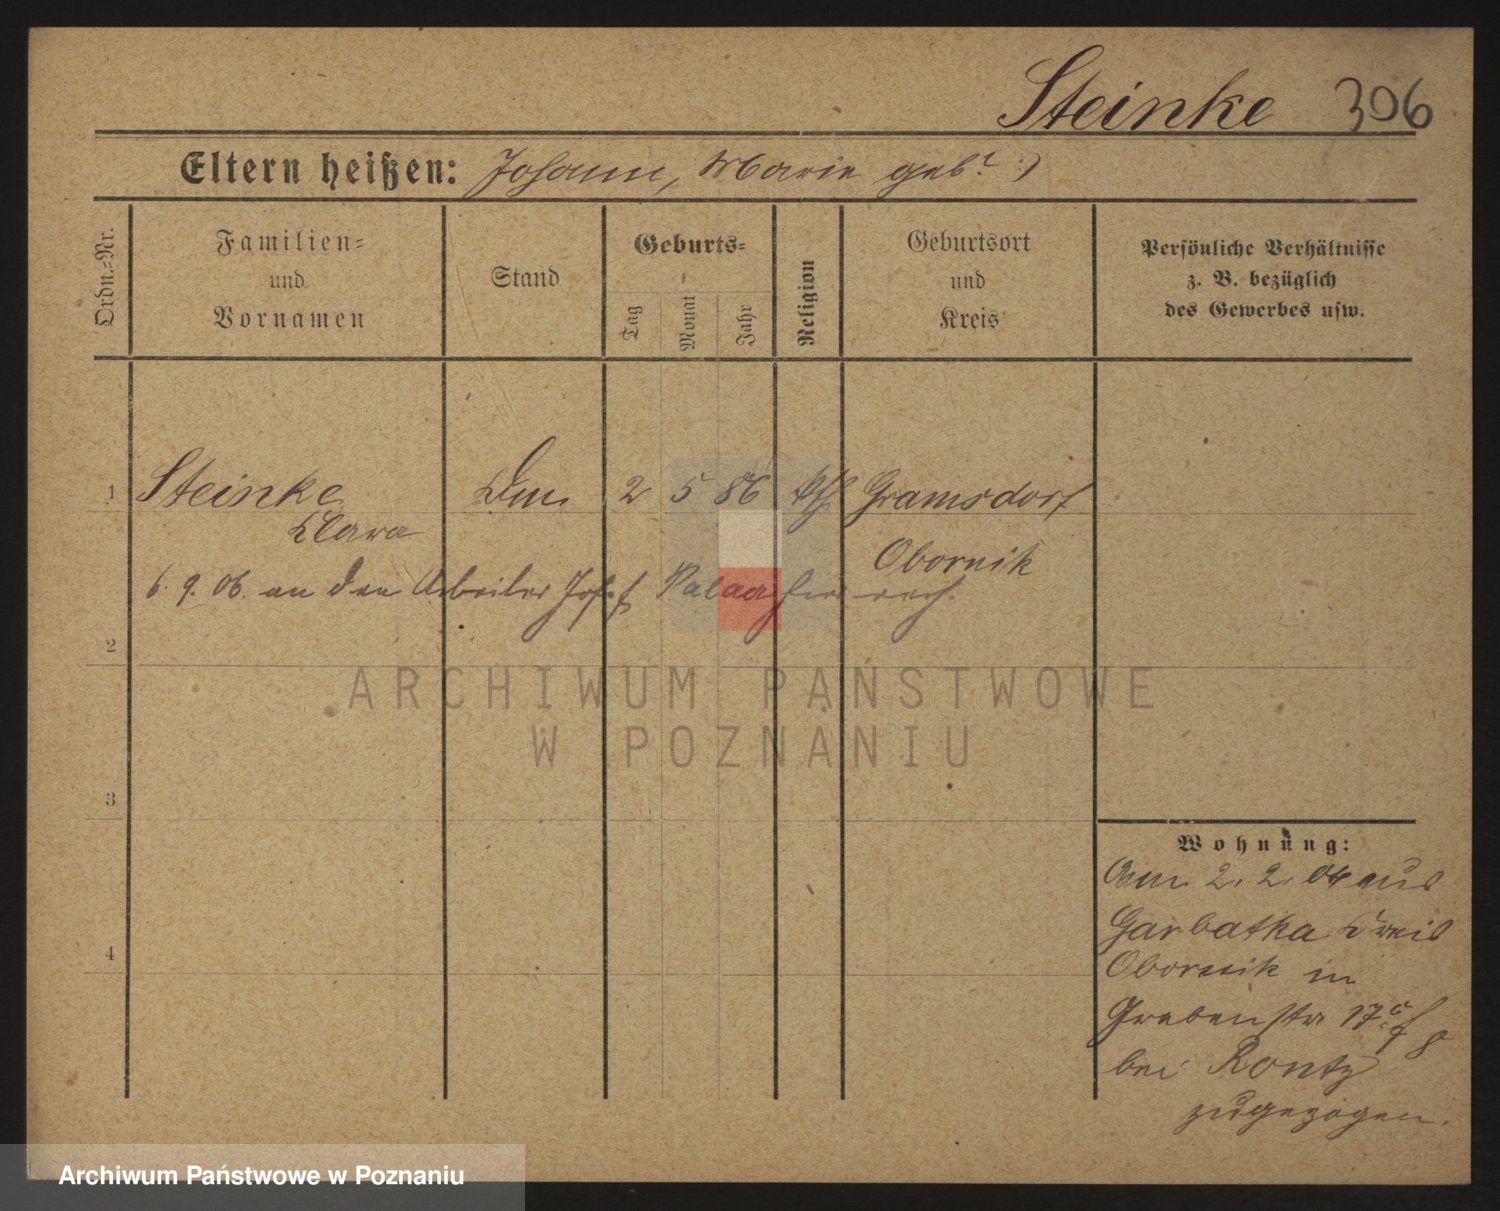 Steinke 306
Eltern heißen: Johann, Marie geb. ? :)
Ordn.-Nr.
Familien-
und
Vornamen
Stand
Geburts-
Tag
Monat
Jahr
Religion
Geburtsort
und
Kreis
Persönliche Verhältnisse
z. B. bezüglich
des Gewerbes usw.
1 Steinke 2 5 86 kth Gramsdorf
Clara
Obornik
6. 9. 06. an den Arbeiter Josef
2
3
4
Wohnung:
Am 2. 2. 04 aus
Garbatka Kreis
Obornik in
Grabenstr 17
bei Rontz
zugezogen.
ARCHIWUM PAŃSTWOWE
W POZNANIU
Archiwum Państwowe w Poznaniu